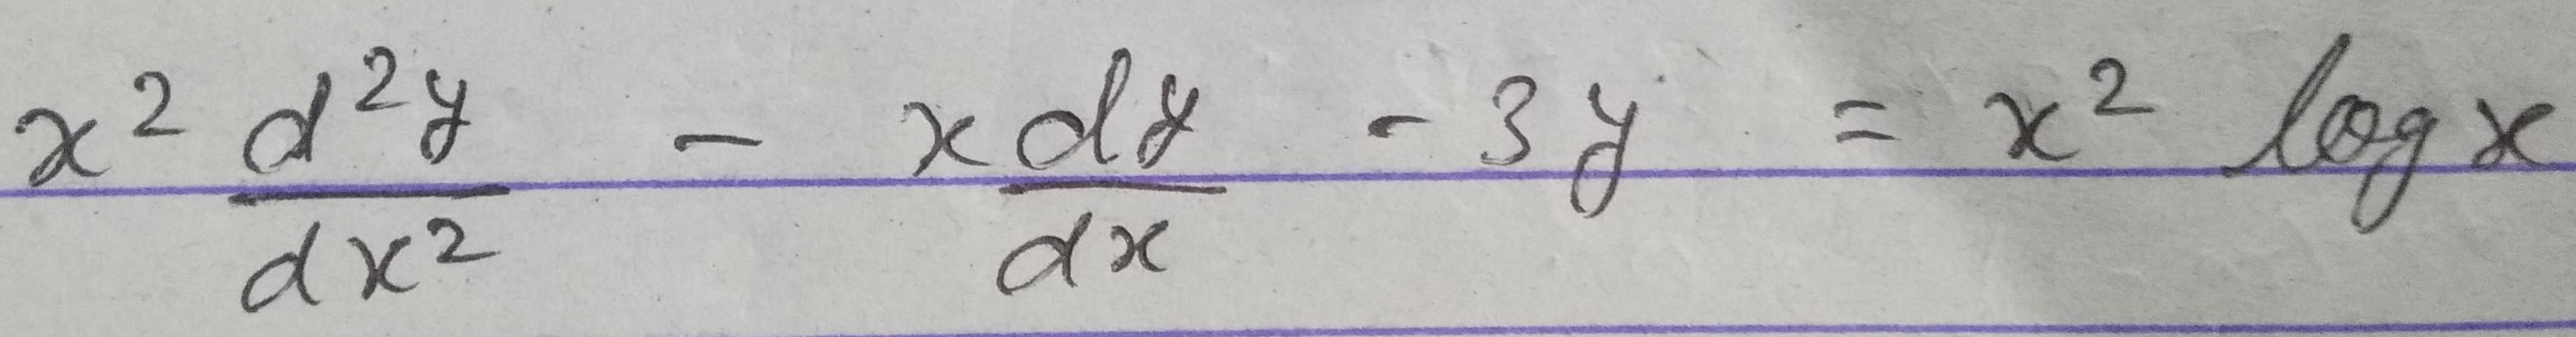 x² d²y/dx² - x dy/dx - 3y = x² log x